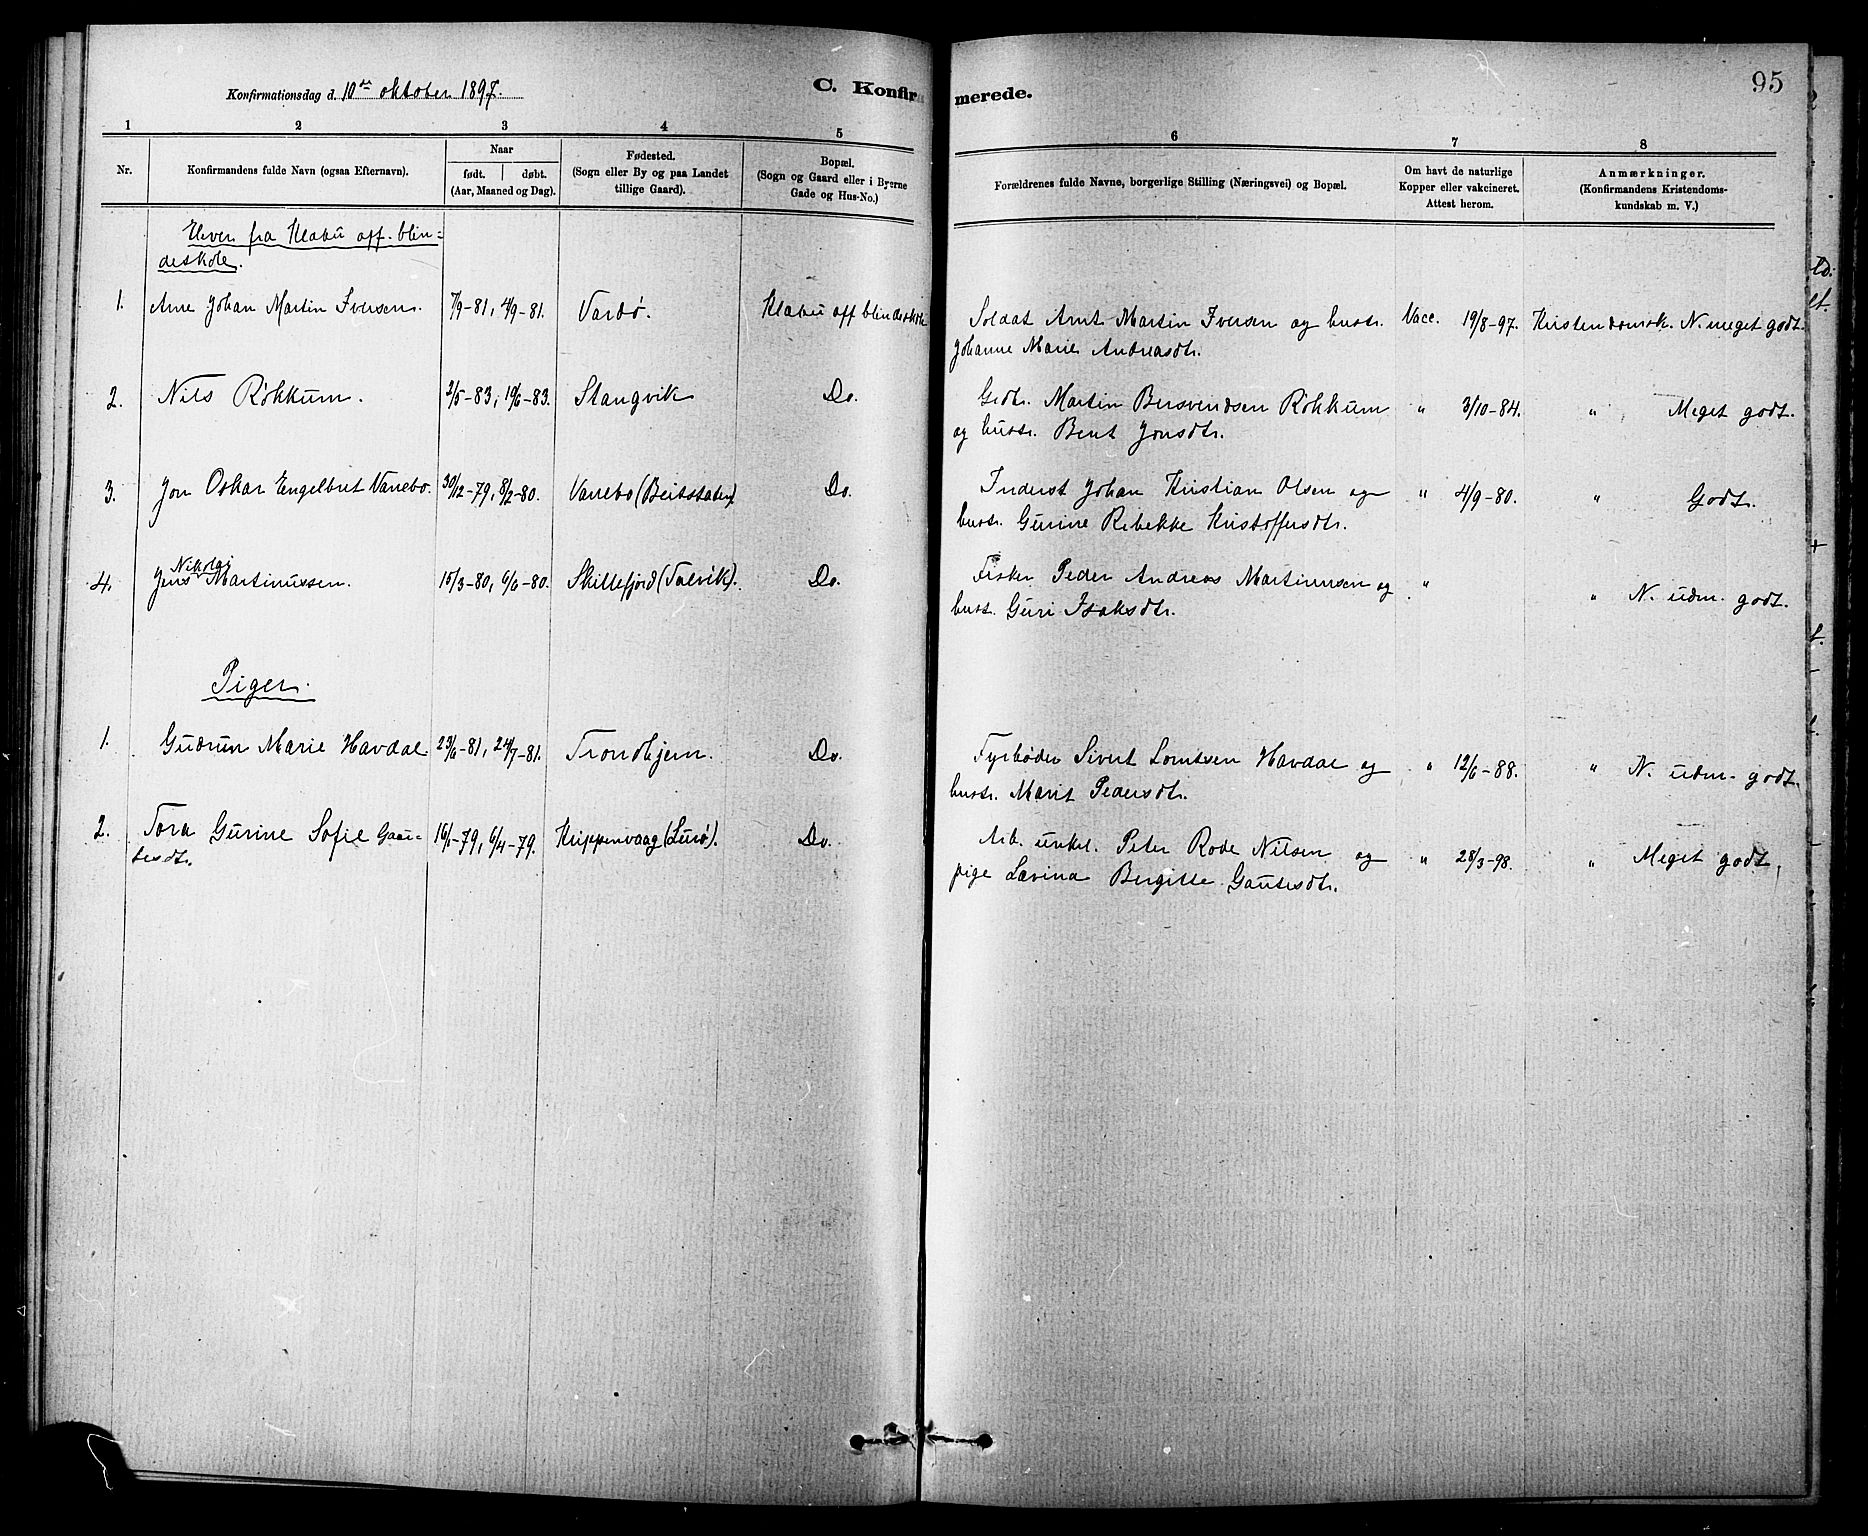 95
Konfirmationsdag d. 10de oktober 1897.
C. Konfirmerede.
1 2 3 4 5 6 7 8
Nr. Konfirmandens fulde Navn (ogsaa Efternavn). Naar født. døbt. (Aar, Maaned og Dag). Fødested. (Sogn eller By og paa Landet tillige Gaard). Bopæl. (Sogn og Gaard eller i Byerne Gade og Hus-No.) Forældrenes fulde Navne, borgerlige Stilling (Næringsvei) og Bopæl. Om havt de naturlige Kopper eller vakcineret. Attest herom. Anmærkninger. (Konfirmandens Kristendoms-kundskab m. V.)
Elever fra Klæbu off. blin=
deskole.
1. Arne Johan Martin Iversen. 7/9-81, 4/9-81. Vardø. Klæbu off blindeskole Soldat Arnt Martin Iversen og hustr. Vacc. 19/8-97. Kristendomsk. N. meget godt.
Johanne Marie Andreasdtr.
2. Nils Røkkum. 2/5-83, 19/6-83. Stangvik Do. Grdbr. Martin Bersvendsen Røkkum " 3/10-84. " Meget godt.
og hustr. Berit Jonsdtr.
3. Jon Oskar Engelbret Vannebo. 30/12-79, 8/2-80. Vannebo (Beitstaden) Do. Inderst Johan Kristian Olsen og " 4/9-80. " Godt.
hustr. Gurine Rebekke Kristoffersdtr.
4. Jens Nikolai Martinussen. 15/3-80, 6/6-80. Skillefjord (Talvik). Do. Fisker Peder Andreas Martinussen og " " N. udm. godt.
hustr. Guri Isaksdtr.
Piger.
1. Gudrun Marie Havdal 23/6-81, 24/7-81. Trondhjem. Do. Fyrbøder Sivert Lorntsen Havdal og " 12/6-88. " N. udm. godt.
hustr. Marit Pedersdtr.
2. Tora Gurine Sofie Gau=
tesdtr. 16/1-79, 6/4-79. Kvippenvaag (Lurø). Do. Arb. unkel. Peter Rode Nilsen og " 28/3-98. " Meget godt,
pige Lævina Bergitte Gautesdtr.